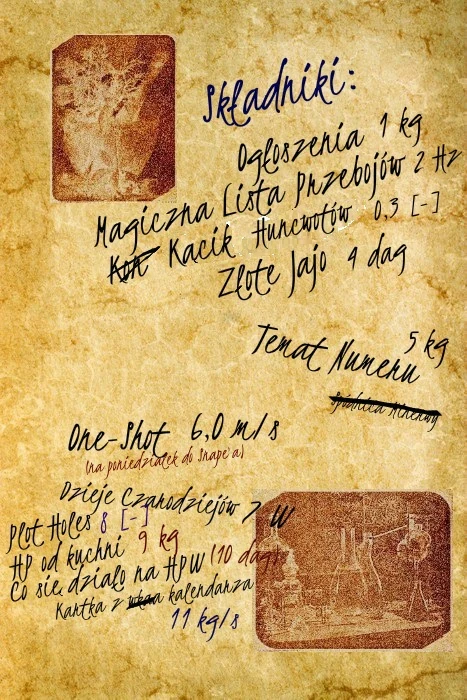 Składniki:
Ogłoszenia 1 kg
Magiczna Lista Przebojów 2 Hz
Koń Kącik Huncwotów 0,3 [-]
Złote Jajo 4 dag
Temat Numeru 5 kg
Spódnica Minerwy
One-Shot 6,0 m/s
(na poniedziałek do Snape'a)
Dzieje Czarodziejów 7 W
Plot Holes 8 [-]
HP od kuchni 9 kg
Co się działo na HPW (10 dag)
Kartka z kalendarza
11 kg/s